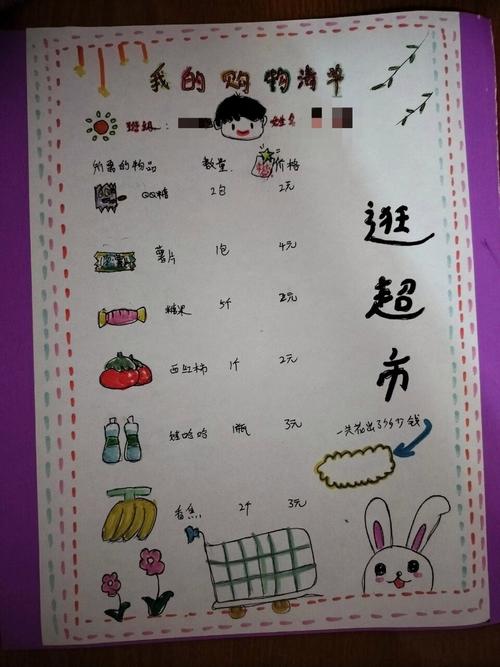 我的购物清单
班级：
姓名
所需的物品 数量 价格
QQ糖 2包 2元
薯片 1包 4元
糖果 5个 2元
西红柿 1个 2元
娃哈哈 1瓶 3元
香焦 2个 3元
逛超市
一共花出了多少钱